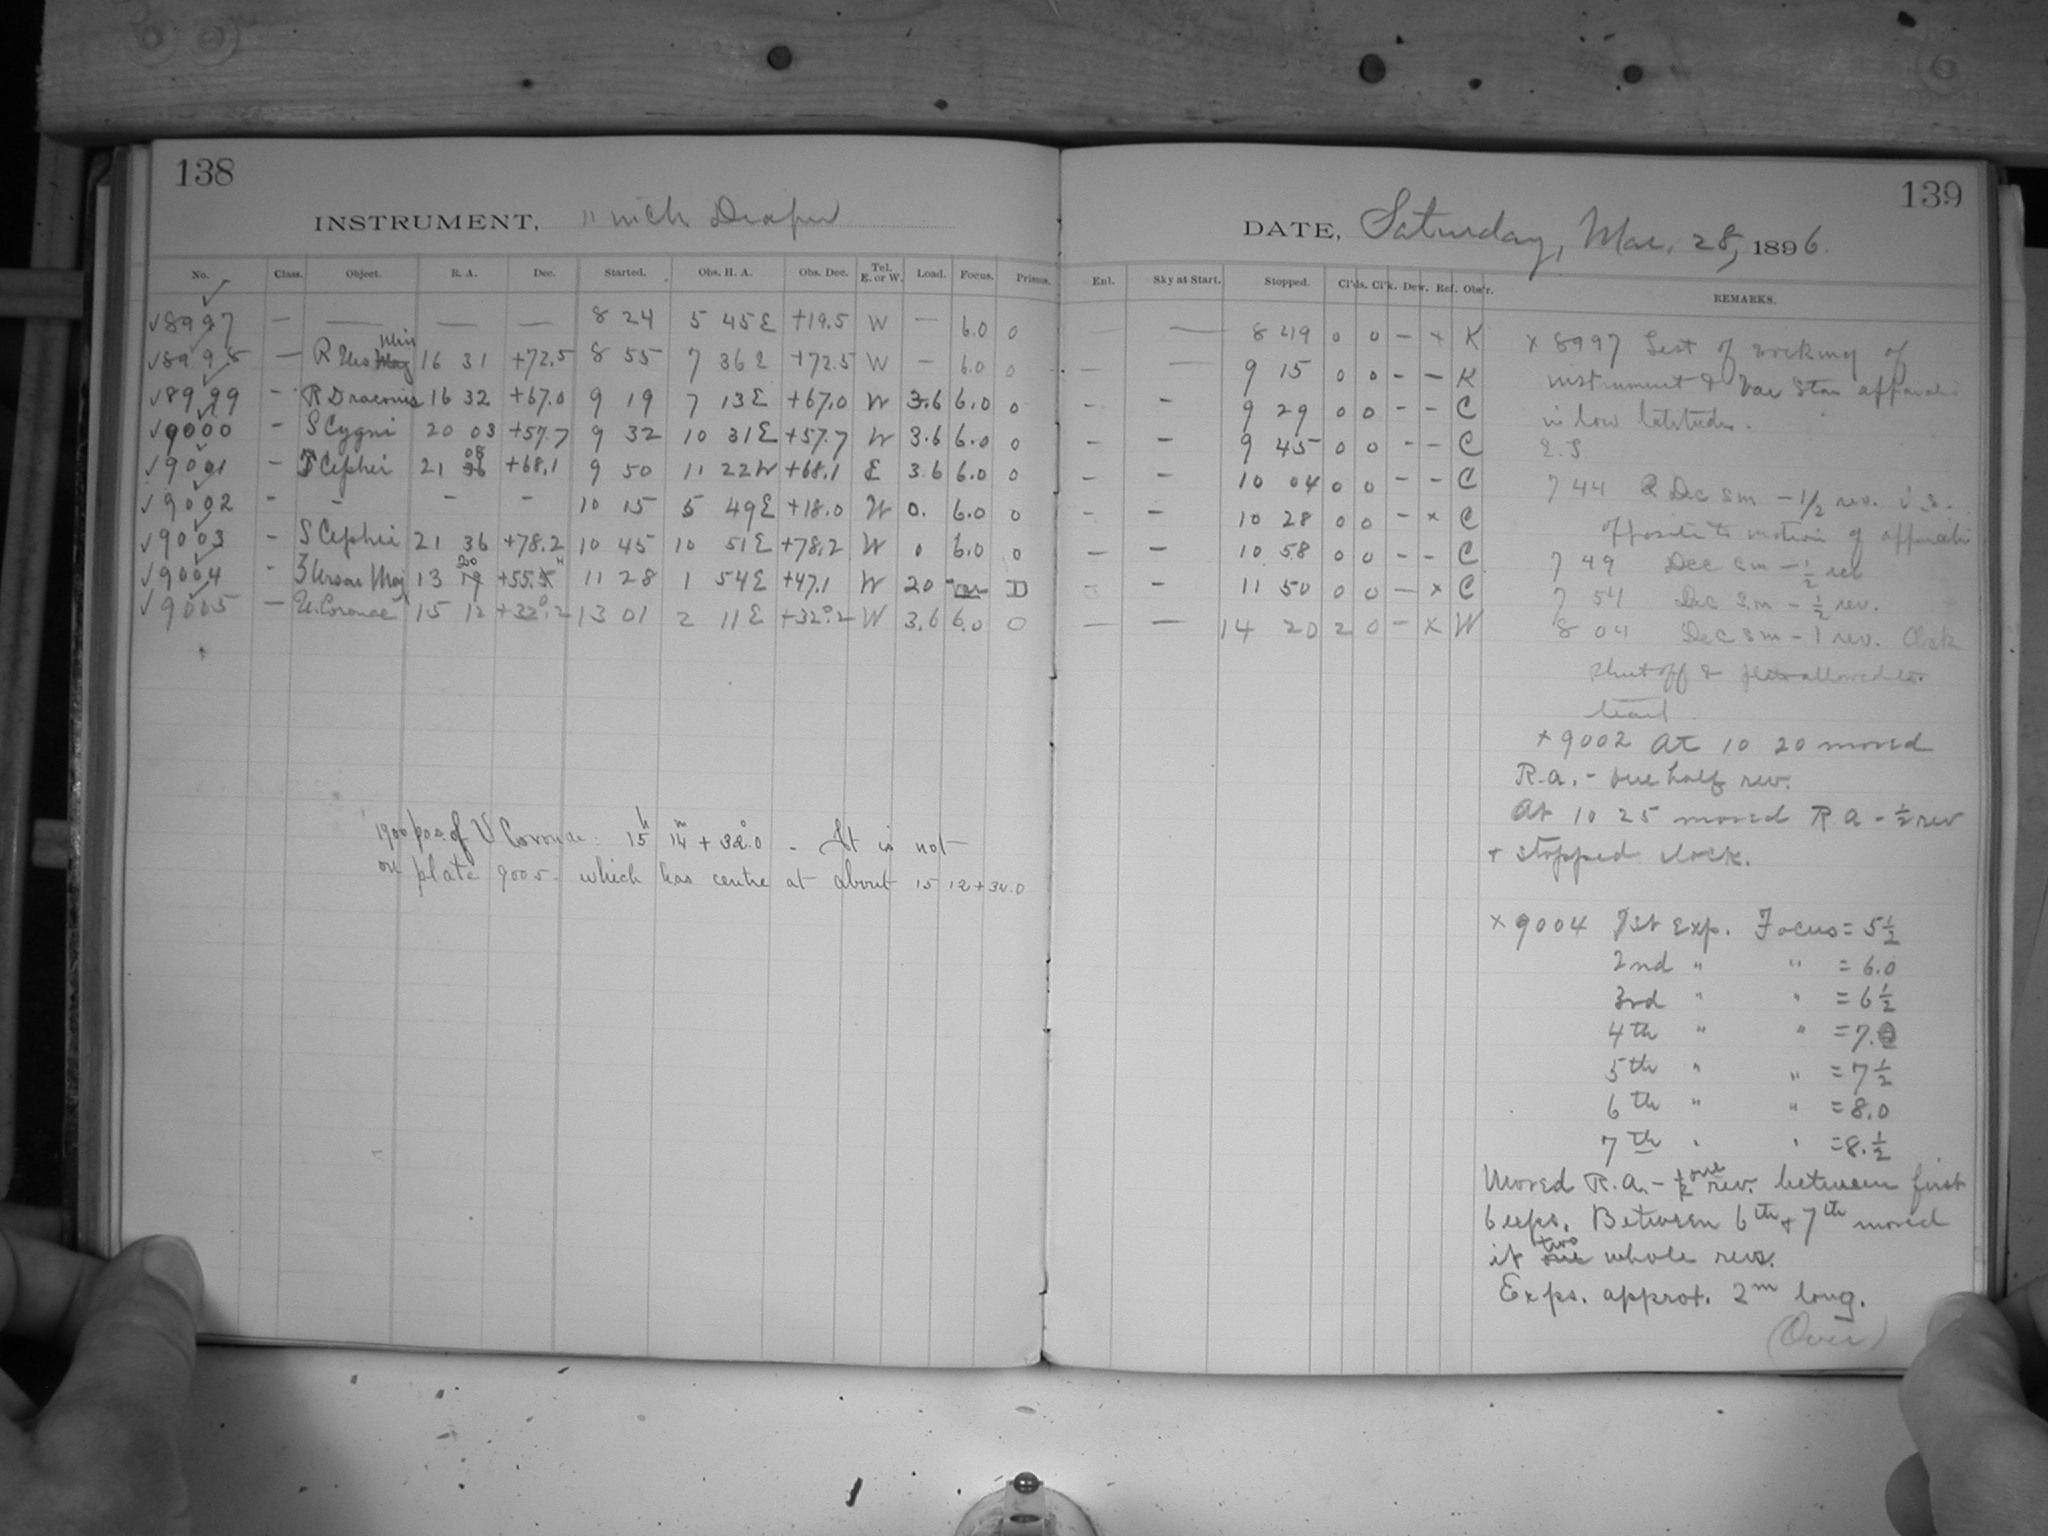 138
INSTRUMENT, 11 inch Draper
No. Class. Object. R. A. Dec. Started. Obs. H. A. Obs. Dec. Tel. E. or W. Load. Focus. Prisms.
✓8997 — — — — 8 24 5 45 E +19.5 W — 6.0 0
✓8998 — R Urs Maj Min 16 31 +72.5 8 55 7 36 E +72.5 W — 6.0 0
✓8999 - R Draconis 16 32 +67.0 9 19 7 13 E +67.0 W 3.6 6.0 0
✓9000 - S Cygni 20 03 +57.7 9 32 10 31 E +57.7 W 3.6 6.0 0
✓9001 - T Cephei 21 08 +68.1 9 50 11 22 W +68.1 E 3.6 6.0 0
✓9002 - - - - 10 15 5 49 E +18.0 W 0. 6.0 0
✓9003 - S Cephei 21 36 +78.2 10 45 10 51 E +78.2 W 0 6.0 0
✓9004 - ζ Ursae Maj 13 19 20 +55. 11 28 1 54 E +47.1 W 20 D
✓9005 — U. Coronae 15 12 +32°.2 13 01 2 11 E +32°.2 W 3.6 6.0 0
1900 pos. of U Coronae: 15h 14m + 32°.0 - It is not
on plate 9005 - which has centre at about 15 12 + 34.0
139
DATE, Saturday, Mar. 28, 1896.
Enl. Sky at Start. Stopped. Cl'ds. Cl'k. Dew. Ref. Obs'r. REMARKS.
— — 8 49 0 0 - x K
— — 9 15 0 0 - - K
- - 9 29 0 0 - - C
- - 9 45 0 0 - - C
- - 10 04 0 0 - - C
- - 10 28 0 0 - x C
— - 10 58 0 0 - - C
- - 11 50 0 0 - x C
— — 14 20 2 0 - x W
x 8997 Test of working of
instrument & Var Star
in low latitudes.
E.S
7 44 Dec sm - 1/2 rev. i.e.
opposite to motion of
7 49 Dec sm - 1/2 rev
7 54 Dec s.m - 1/2 rev.
8 04 Dec sm - 1 rev. Clock
shut off & allowed to
trail.
x 9002 At 10 20 moved
R.a. - one half rev.
At 10 25 moved R a - 1/2 rev
+ stopped clock.
x 9004 1st Exp. Focus = 5 1/2
2nd " " = 6.0
3rd " " = 6 1/2
4th " " = 7.0
5th " " = 7 1/2
6th " " = 8.0
7th " " = 8. 1/2
Moved R.a. - 1/2 one rev. between first
6 exps. Between 6th + 7th moved
it one two whole revs.
Exps. approx. 2m long.
(Over)